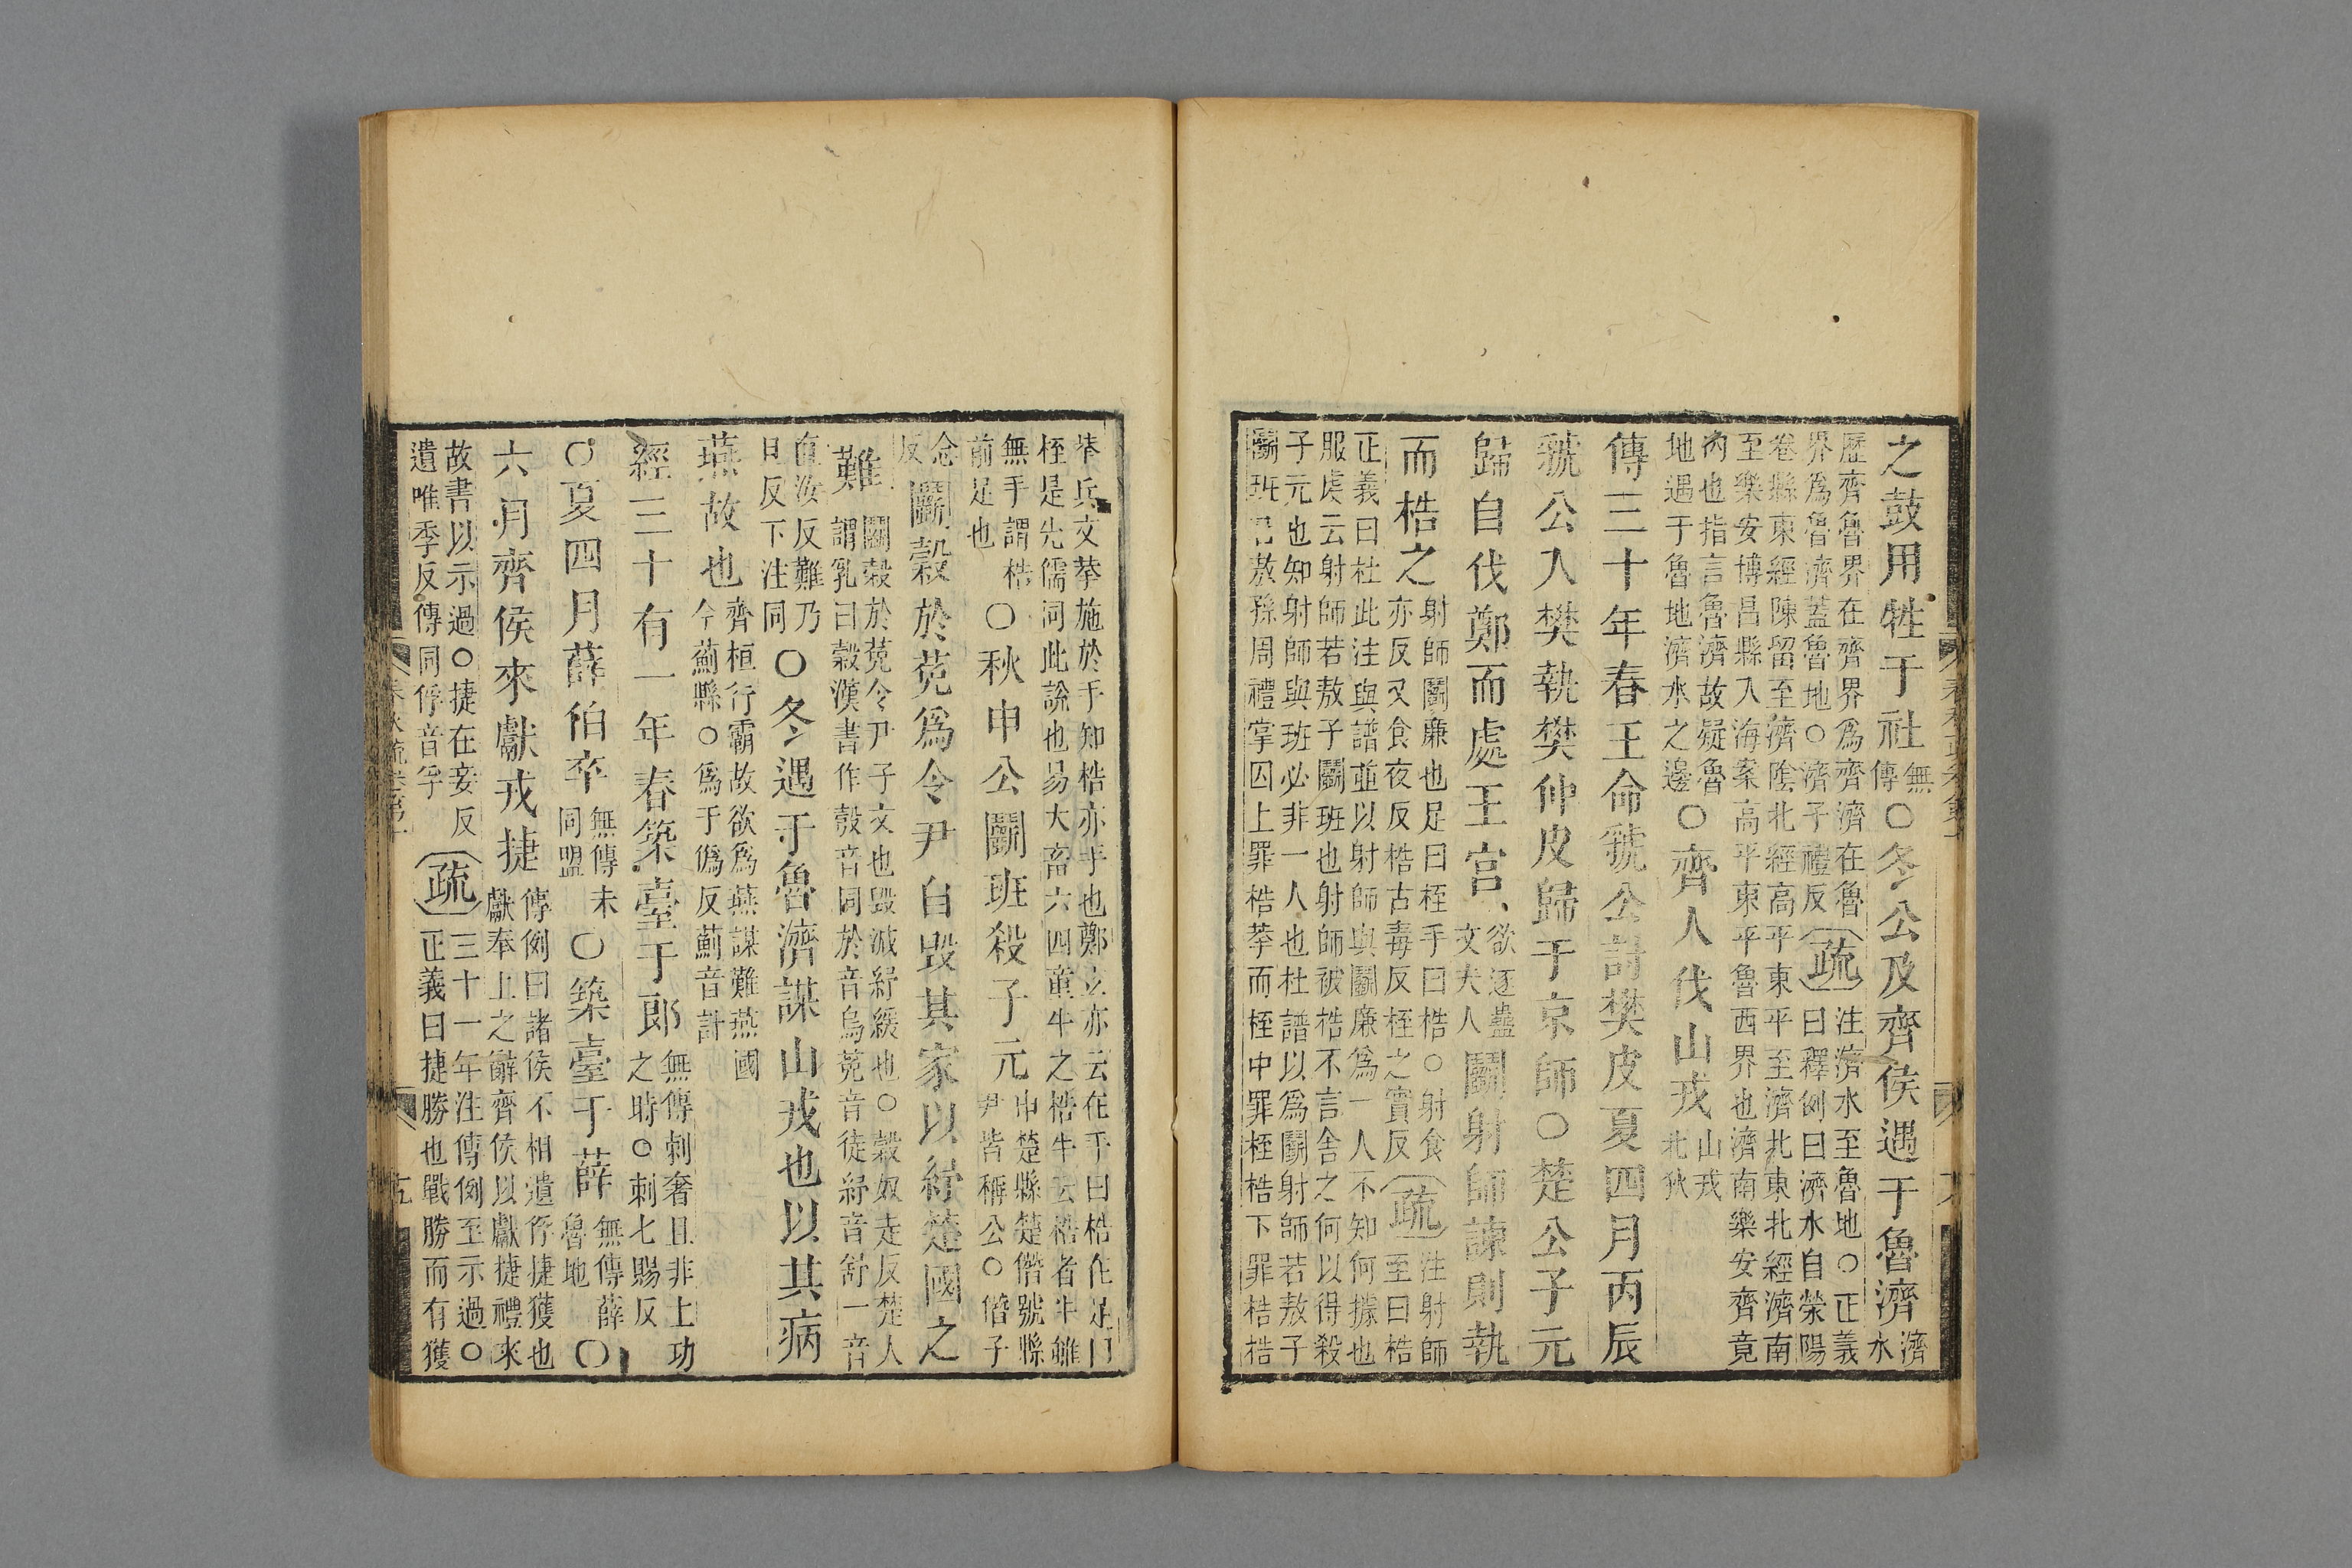 之鼓用牲于社無傳○冬公及齊侯遇于魯濟濟水
歷齊魯界在齊界爲齊濟在魯
界爲魯濟蓋魯地○濟子禮反疏注濟水至魯地○正義
曰釋例曰濟水自滎陽
卷縣東經陳留至濟陰北經高平東平至濟北東北經濟南
至樂安博昌縣入海案高平東平魯西界也濟南樂安齊竟
內也指言魯濟故疑魯
地遇于魯地濟水之邊○齊人伐山戎山戎北狄
傳三十年春王命虢公討樊皮夏四月丙辰
虢公入樊執樊仲皮歸于京師○楚公子元
歸自伐鄭而處王宮欲逐蠱文夫人鬭射師諫則執
而梏之射師鬭廉也足曰桎手曰梏○射食
亦反又食夜反梏古毒反桎之實反疏注射師
至曰梏
正義曰杜此注與譜並以射師與鬭廉爲一人不知何據也
服虔云射師若敖子鬭班也射師被梏不言舍之何以得殺
子元也知射師與班必非一人也杜譜以爲鬭射師若敖子
鬭班若敖孫周禮掌囚上罪梏拲而桎中罪桎梏下罪梏梏
拲兵文拲施於手知梏亦手也鄭玄亦云在手曰梏在足曰
桎是先儒同此說也易大畜六四童牛之梏牛云梏者牛雖
無手謂梏
前足也○秋申公鬭班殺子元申楚縣楚僭號縣
尹皆稱公○僭子
念
反鬭穀於菟爲令尹自毀其家以紓楚國之
難鬭穀於菟令尹子文也毀減紓緩也○穀奴走反楚人
謂乳曰穀漢書作㝅音同於音烏菟音徒紓音舒一音
直汝反難乃
旦反下注同○冬遇于魯濟謀山戎也以其病
燕故也齊桓行霸故欲爲燕謀難燕國
今薊縣○爲于僞反薊音計
經三十有一年春築臺于郎無傳刺奢且非土功
之時○刺七賜反
○夏四月薛伯卒無傳未
同盟○築臺于薛無傳薛
魯地○
六月齊侯來獻戎捷傳例曰諸侯不相遺俘捷獲也
獻奉上之辭齊侯以獻捷禮來
故書以示過○捷在妾反
遺唯季反傳同俘音孚疏三十一年注傳例至示過○
正義曰捷勝也戰勝而有獲